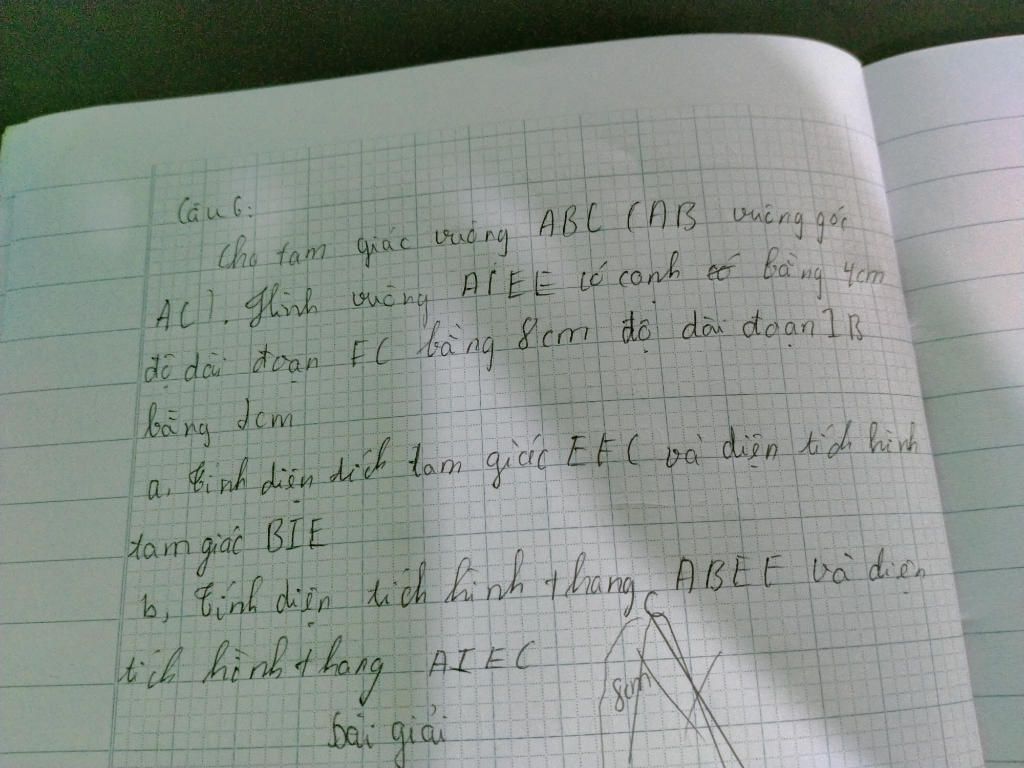 Câu 6:
Cho tam giác vuông ABC (AB vuông góc
AC). Hình vuông AIEF có cạnh có bằng 4cm
độ dài đoạn FC bằng 8cm độ dài đoạn IB
bằng 2cm
a, tính diện tích tam giác EFC và diện tích hình
tam giác BIE
b, tính diện tích hình thang ABEF và diện
tích hình thang AIEC
bài giải
C
8cm